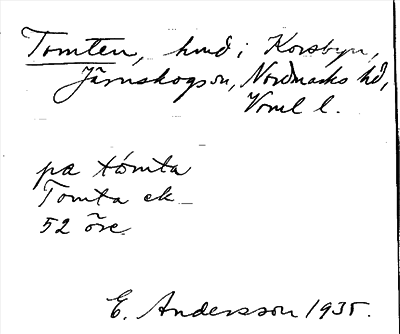 Tomten, hmd i Korsbyn,
Järnskogsn, Nordmarks hd,
Vrml l.
pa tómta
Tomta ek
52 öre
E. Andersson 1935.